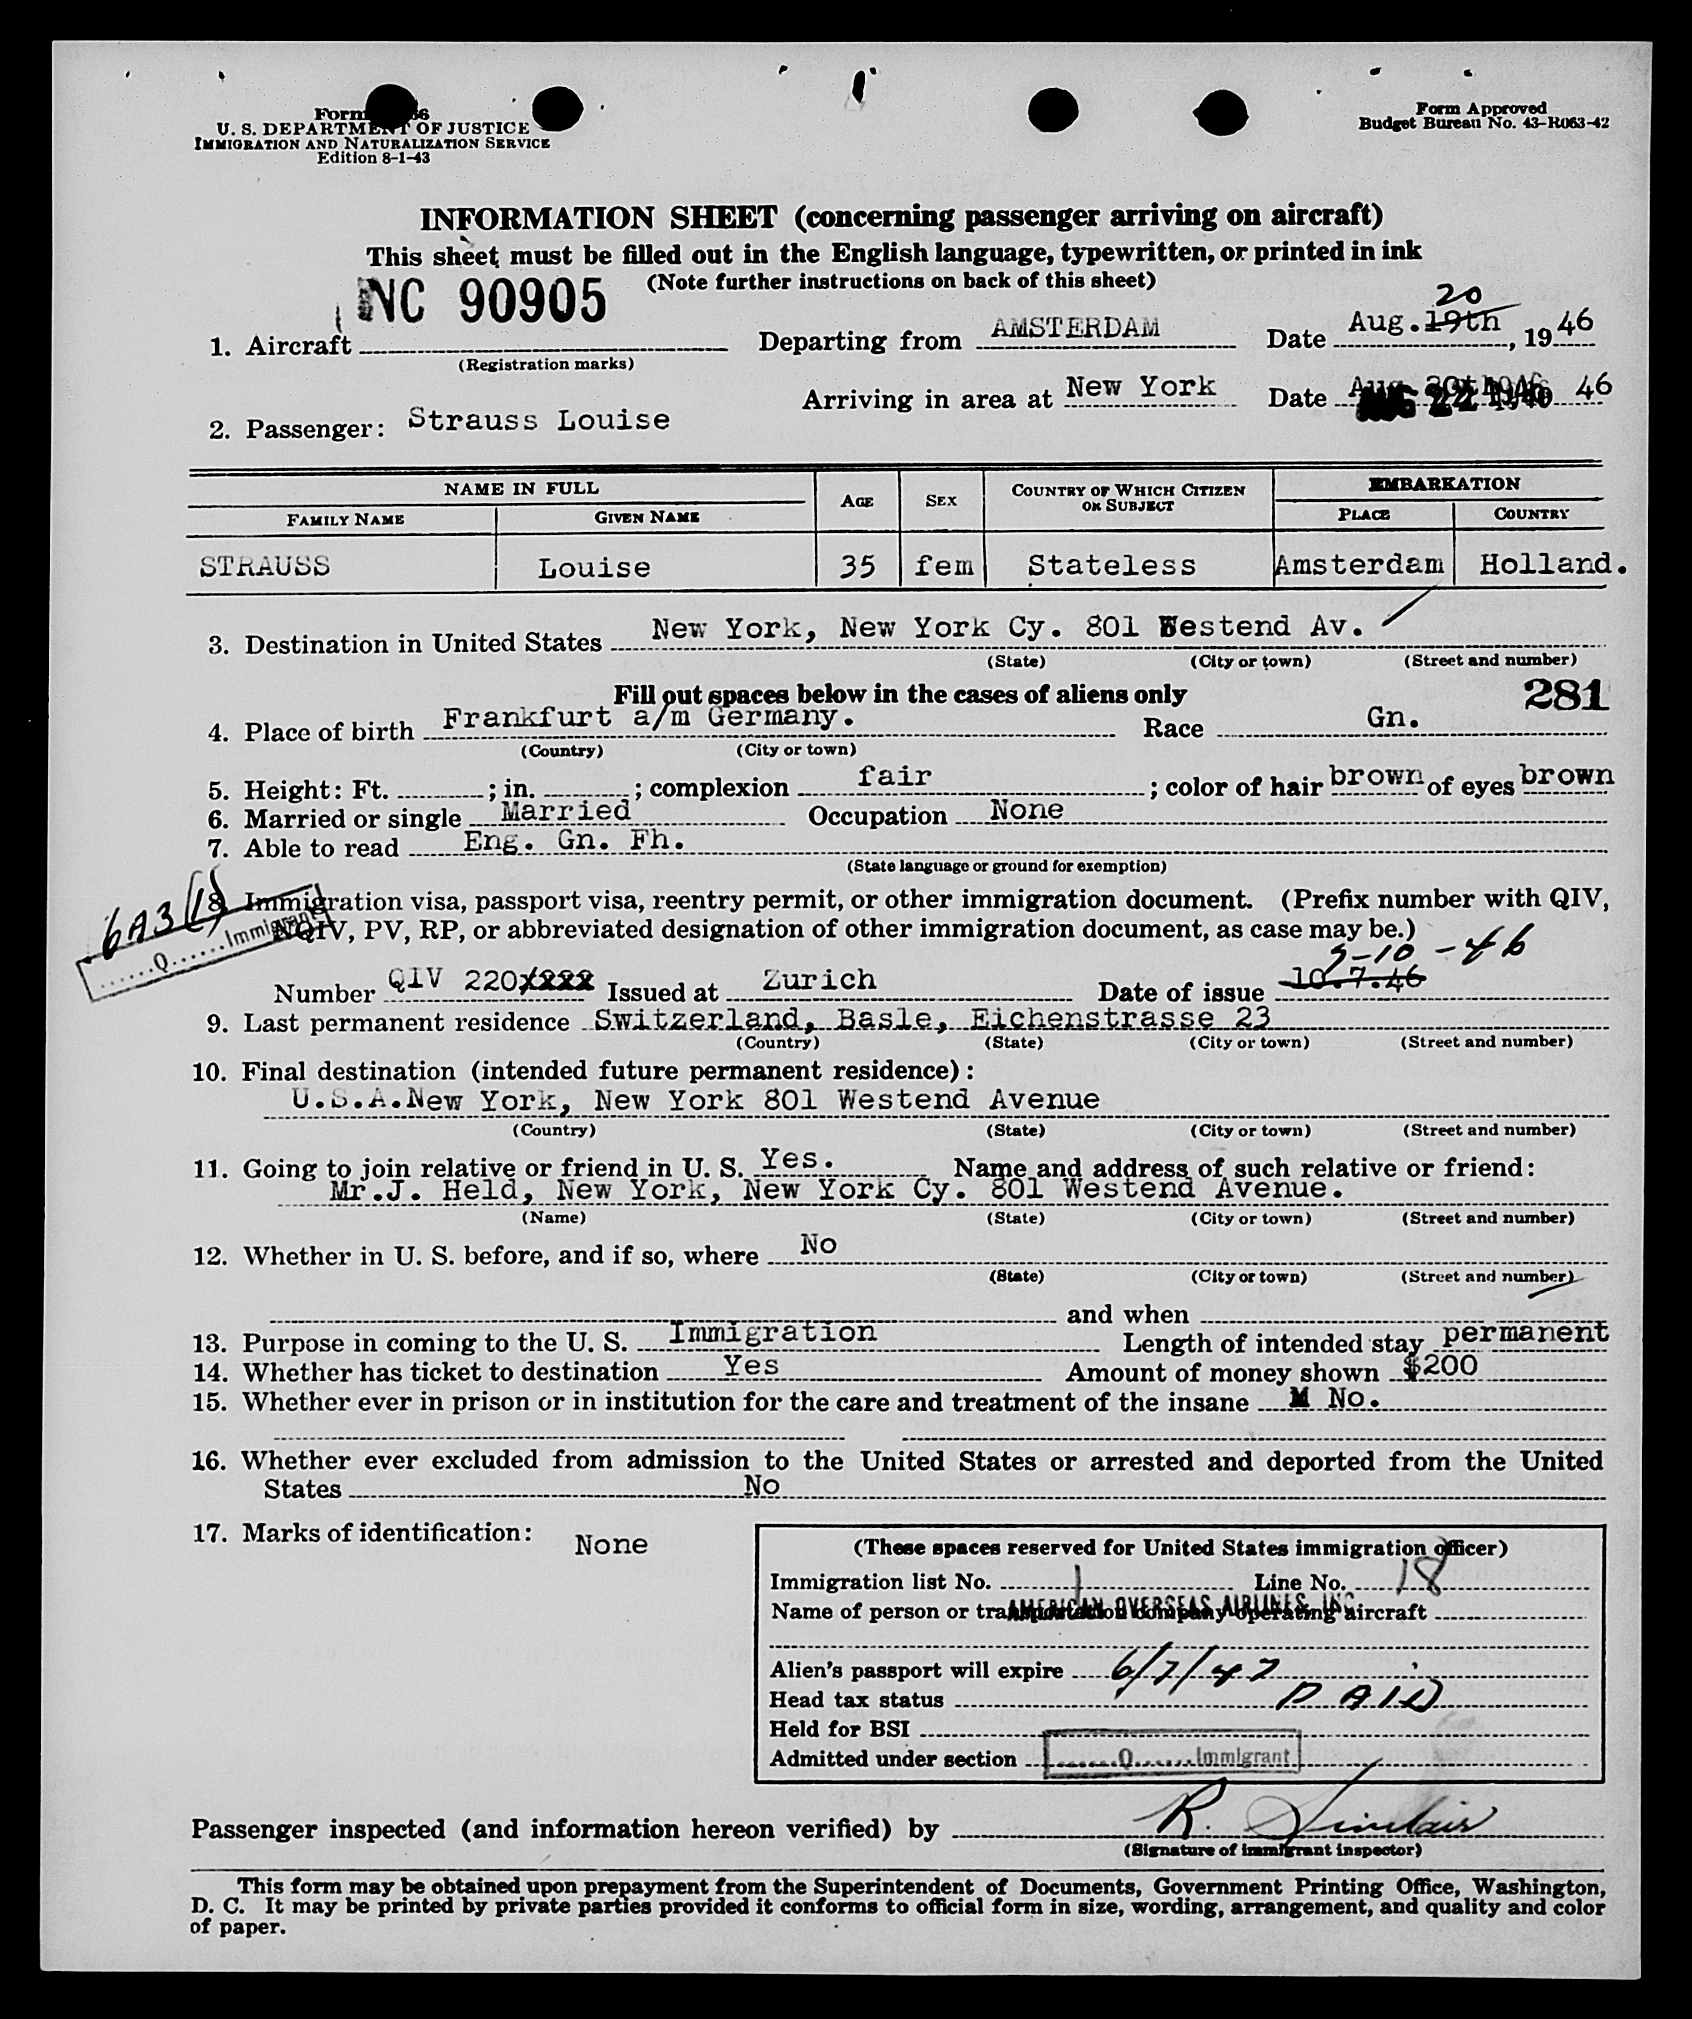 Form
U. S. DEPARTMENT OF JUSTICE
IMMIGRATION AND NATURALIZATION SERVICE
Edition 8-1-43
Form Approved
Budget Bureau No. 43-R063-42
INFORMATION SHEET (concerning passenger arriving on aircraft)
This sheet must be filled out in the English language, typewritten, or printed in ink
(Note further instructions on back of this sheet)
NC 90905
20
1. Aircraft Departing from AMSTERDAM Date Aug. 19th, 1946
(Registration marks)
Arriving in area at New York Date AUG 22 1946 46
2. Passenger: Strauss Louise
NAME IN FULL AGE SEX COUNTRY OF WHICH CITIZEN OR SUBJECT EMBARKATION
FAMILY NAME GIVEN NAME PLACE COUNTRY
STRAUSS Louise 35 fem Stateless Amsterdam Holland.
3. Destination in United States New York, New York Cy. 801 Westend Av.
(State) (City or town) (Street and number)
Fill out spaces below in the cases of aliens only
281
4. Place of birth Frankfurt a/m Germany. Race Gn.
(Country) (City or town)
5. Height: Ft. ; in. ; complexion fair ; color of hair brown of eyes brown
6. Married or single Married Occupation None
7. Able to read Eng. Gn. Fh.
(State language or ground for exemption)
6A3(1)
Q Immigrant
8. Immigration visa, passport visa, reentry permit, or other immigration document. (Prefix number with QIV,
NQIV, PV, RP, or abbreviated designation of other immigration document, as case may be.)
Number QIV 220 Issued at Zurich Date of issue 10.7.46
9. Last permanent residence Switzerland, Basle, Eichenstrasse 23
(Country) (State) (City or town) (Street and number)
10. Final destination (intended future permanent residence):
U.S.A.New York, New York 801 Westend Avenue
(Country) (State) (City or town) (Street and number)
11. Going to join relative or friend in U. S. Yes. Name and address of such relative or friend:
Mr.J. Held, New York, New York Cy. 801 Westend Avenue.
(Name) (State) (City or town) (Street and number)
12. Whether in U. S. before, and if so, where No
(State) (City or town) (Street and number)
and when
13. Purpose in coming to the U. S. Immigration Length of intended stay permanent
14. Whether has ticket to destination Yes Amount of money shown $200
15. Whether ever in prison or in institution for the care and treatment of the insane No.
16. Whether ever excluded from admission to the United States or arrested and deported from the United
States No
17. Marks of identification: None
(These spaces reserved for United States immigration officer)
Immigration list No. 1 Line No. 18
Name of person or transportation company operating aircraft
AMERICAN OVERSEAS AIRLINES INC
Alien's passport will expire 6/7/47
Head tax status PAID
Held for BSI
Admitted under section Q Immigrant
Passenger inspected (and information hereon verified) by R. Sinclair
(Signature of immigrant inspector)
This form may be obtained upon prepayment from the Superintendent of Documents, Government Printing Office, Washington,
D. C. It may be printed by private parties provided it conforms to official form in size, wording, arrangement, and quality and color
of paper.